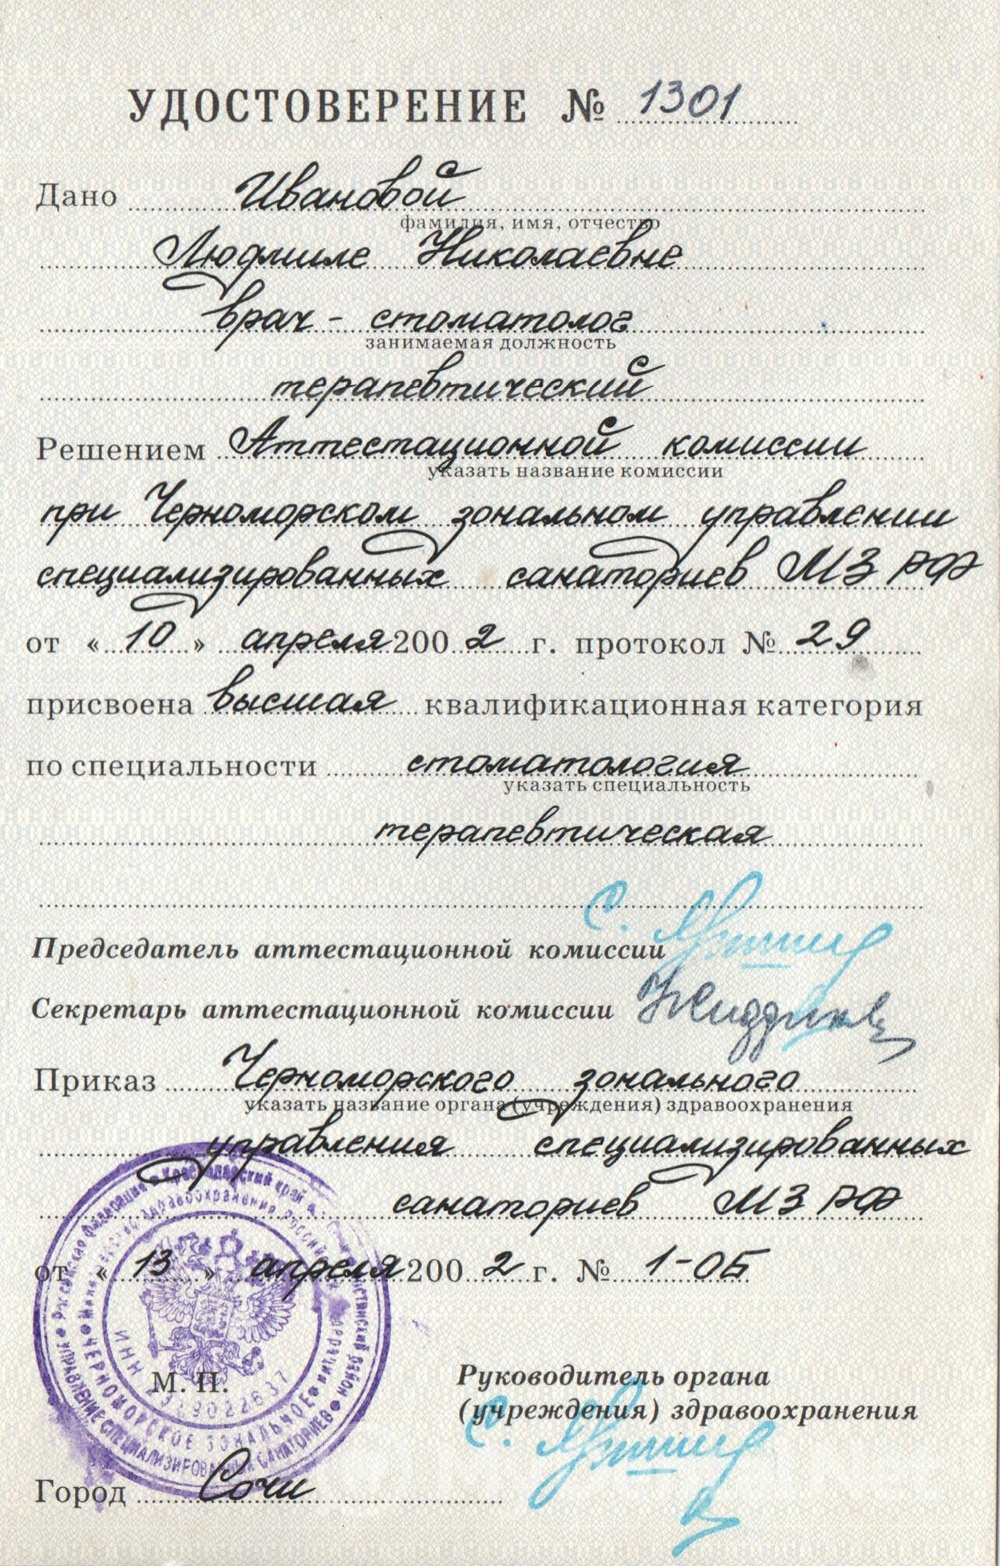 УДОСТОВЕРЕНИЕ № 1301
Дано Ивановой
фамилия, имя, отчество
Людмиле Николаевне
врач - стоматолог
занимаемая должность
терапевтический
Решением Аттестационной комиссии
указать название комиссии
при Черноморском зональном управлении
специализированных санаториев МЗ РФ
от « 10 » апреля 2002 г. протокол № 29
присвоена высшая квалификационная категория
по специальности стоматология
указать специальность
терапевтическая
Председатель аттестационной комиссии
Секретарь аттестационной комиссии
Приказ Черноморского зонального
указать название органа (учреждения) здравоохранения
управления специализированных
санаториев МЗ РФ
от « 13 » апреля 2002 г. № 1-ОБ
Российская Федерация Краснодарский край
Министерство здравоохранения Российской
ЧЕРНОМОРСКОЕ ЗОНАЛЬНОЕ
УПРАВЛЕНИЕ СПЕЦИАЛИЗИРОВАННЫХ САНАТОРИЕВ
ИНН
М. П.
Руководитель органа
(учреждения) здравоохранения
Город Сочи